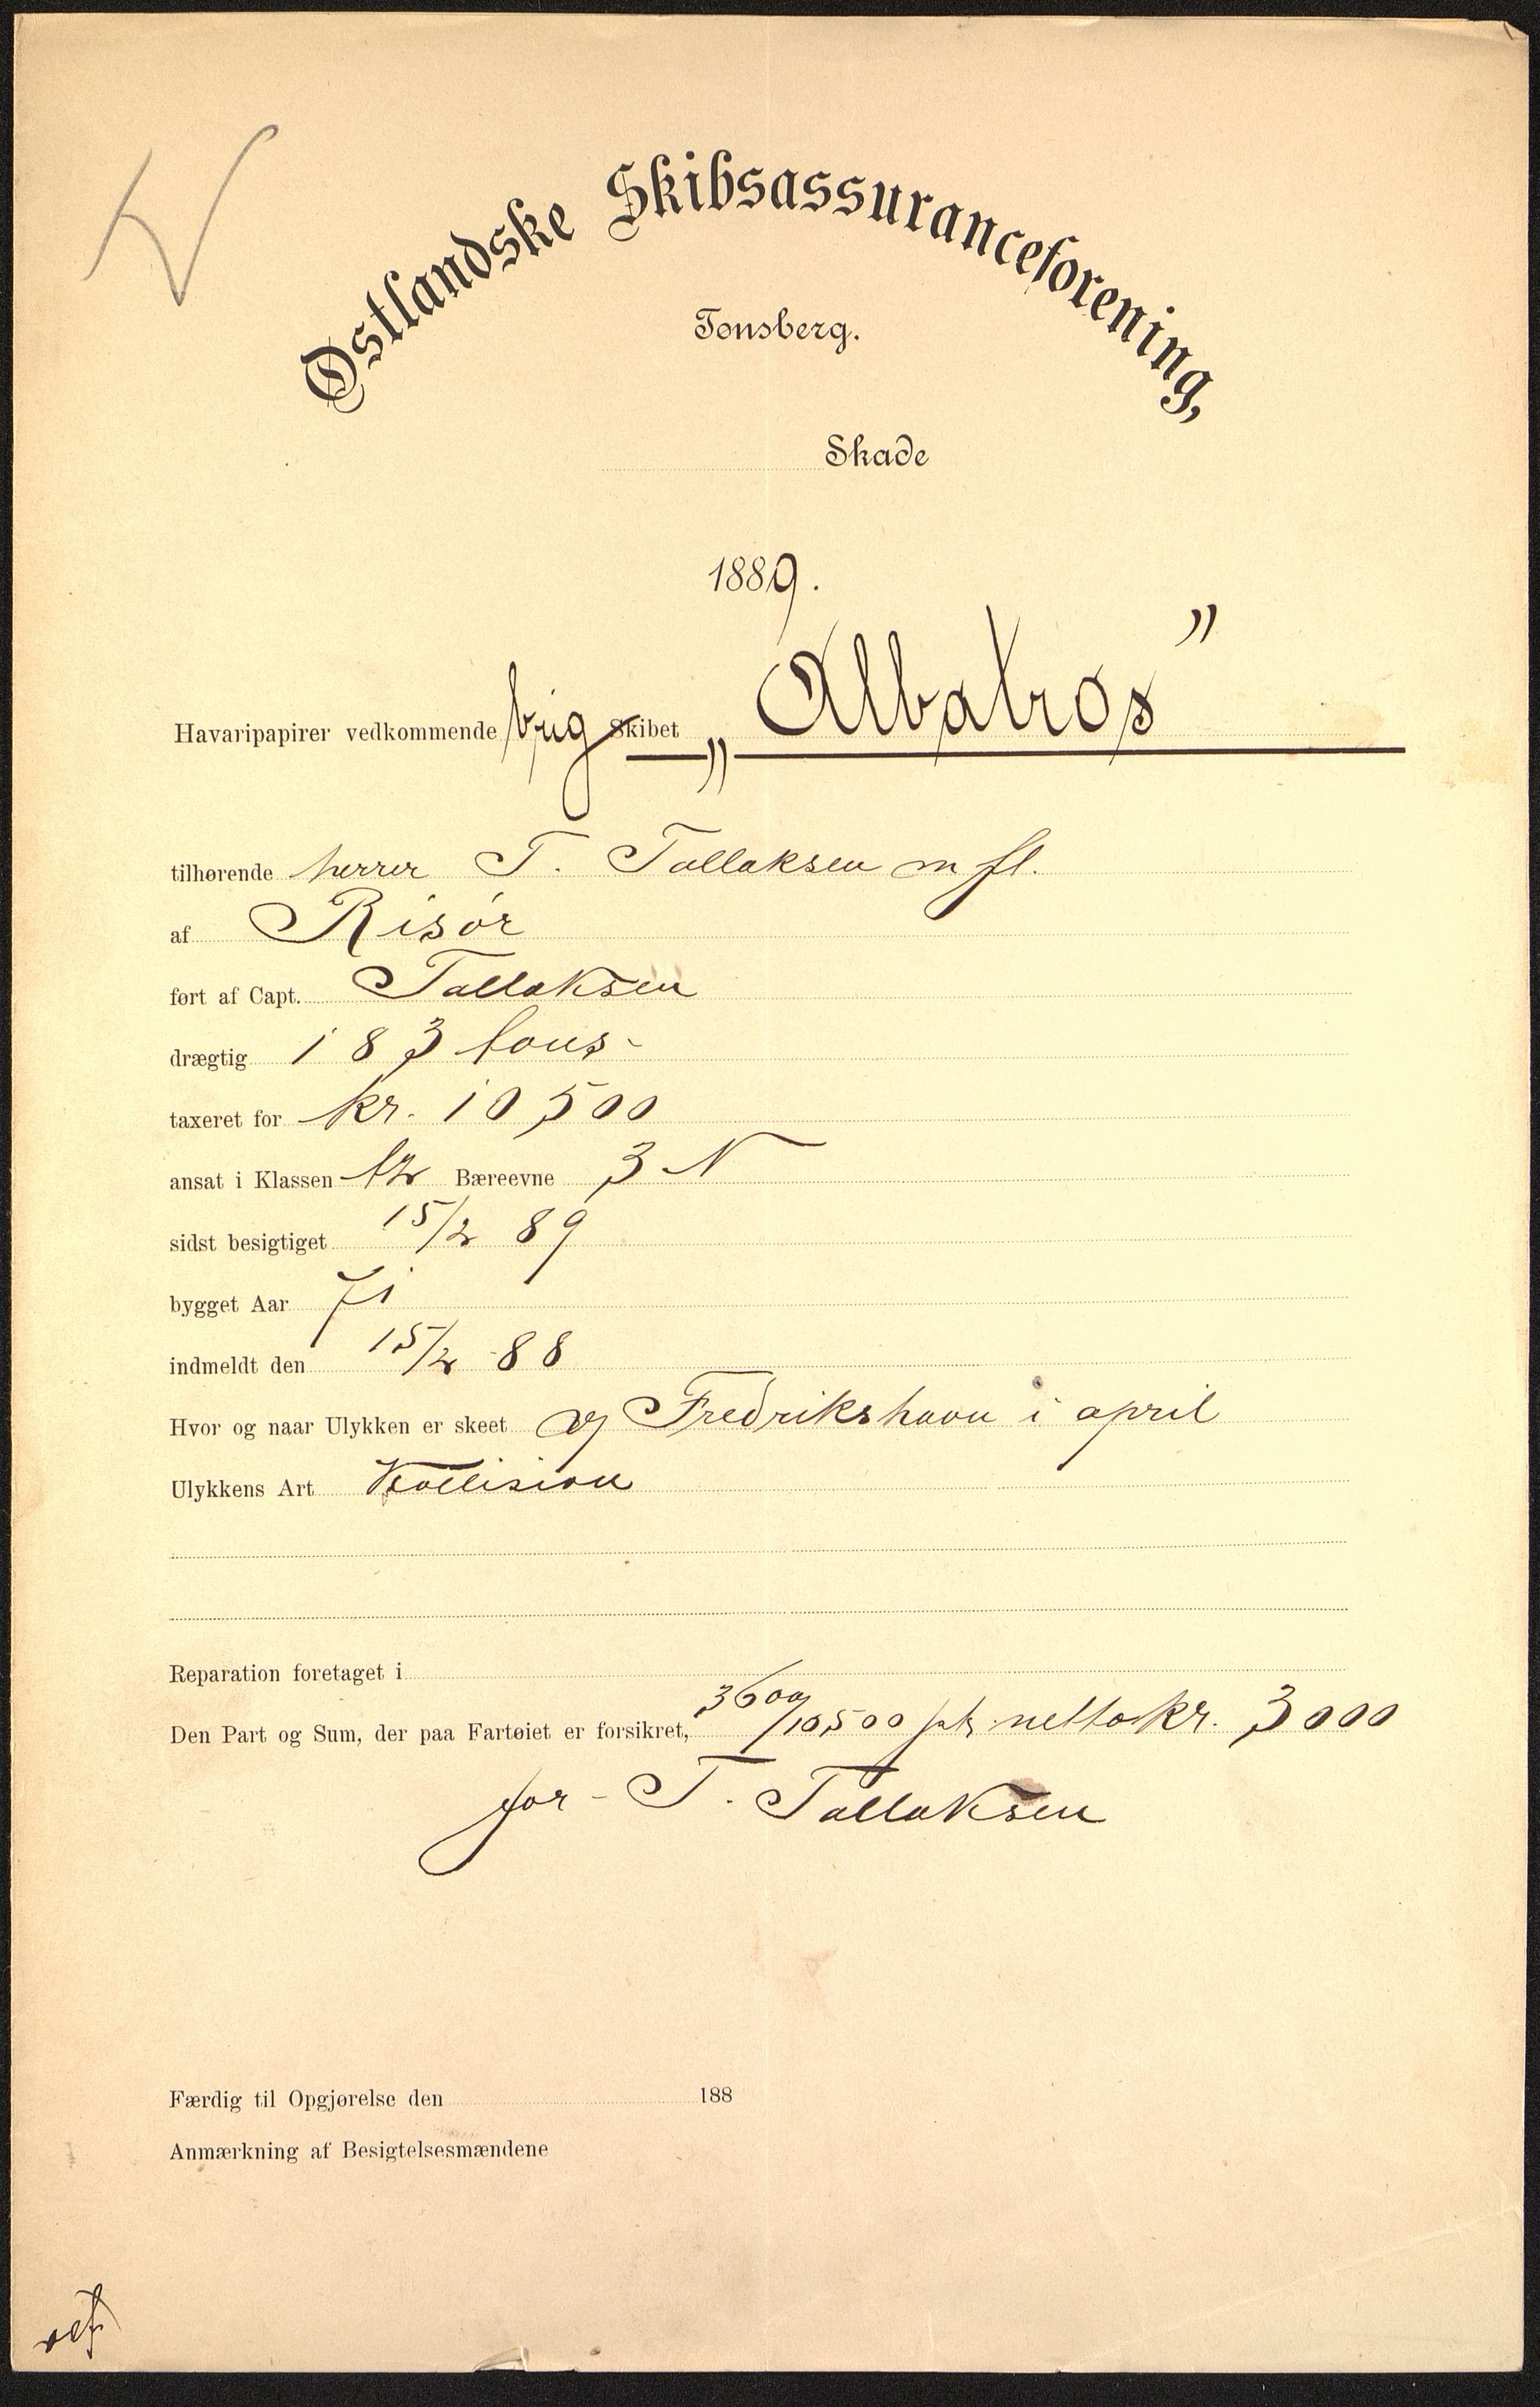 Østlandske Skibsassuranceforening,
Tønsberg.
Skade
1889.
Havaripapirer vedkommende brig Skibet „Albatros”
tilhørende herrer T. Tallaksen m fl.
af Risør
ført af Capt. Tallaksen
drægtig 183 tons-
taxeret for kr. 10500
ansat i Klassen Bæreevne 3 N
sidst besigtiget 15/2 89
bygget Aar 71
indmeldt den 15/2 88
Hvor og naar Ulykken er skeet Fredrikshavn i april
Ulykkens Art Kollision
Reparation foretaget i
Den Part og Sum, der paa Fartøiet er forsikret, 3600/10500 netto kr. 3000
for - T. Tallaksen
Færdig til Opgjørelse den 188
Anmærkning af Besigtelsesmændene